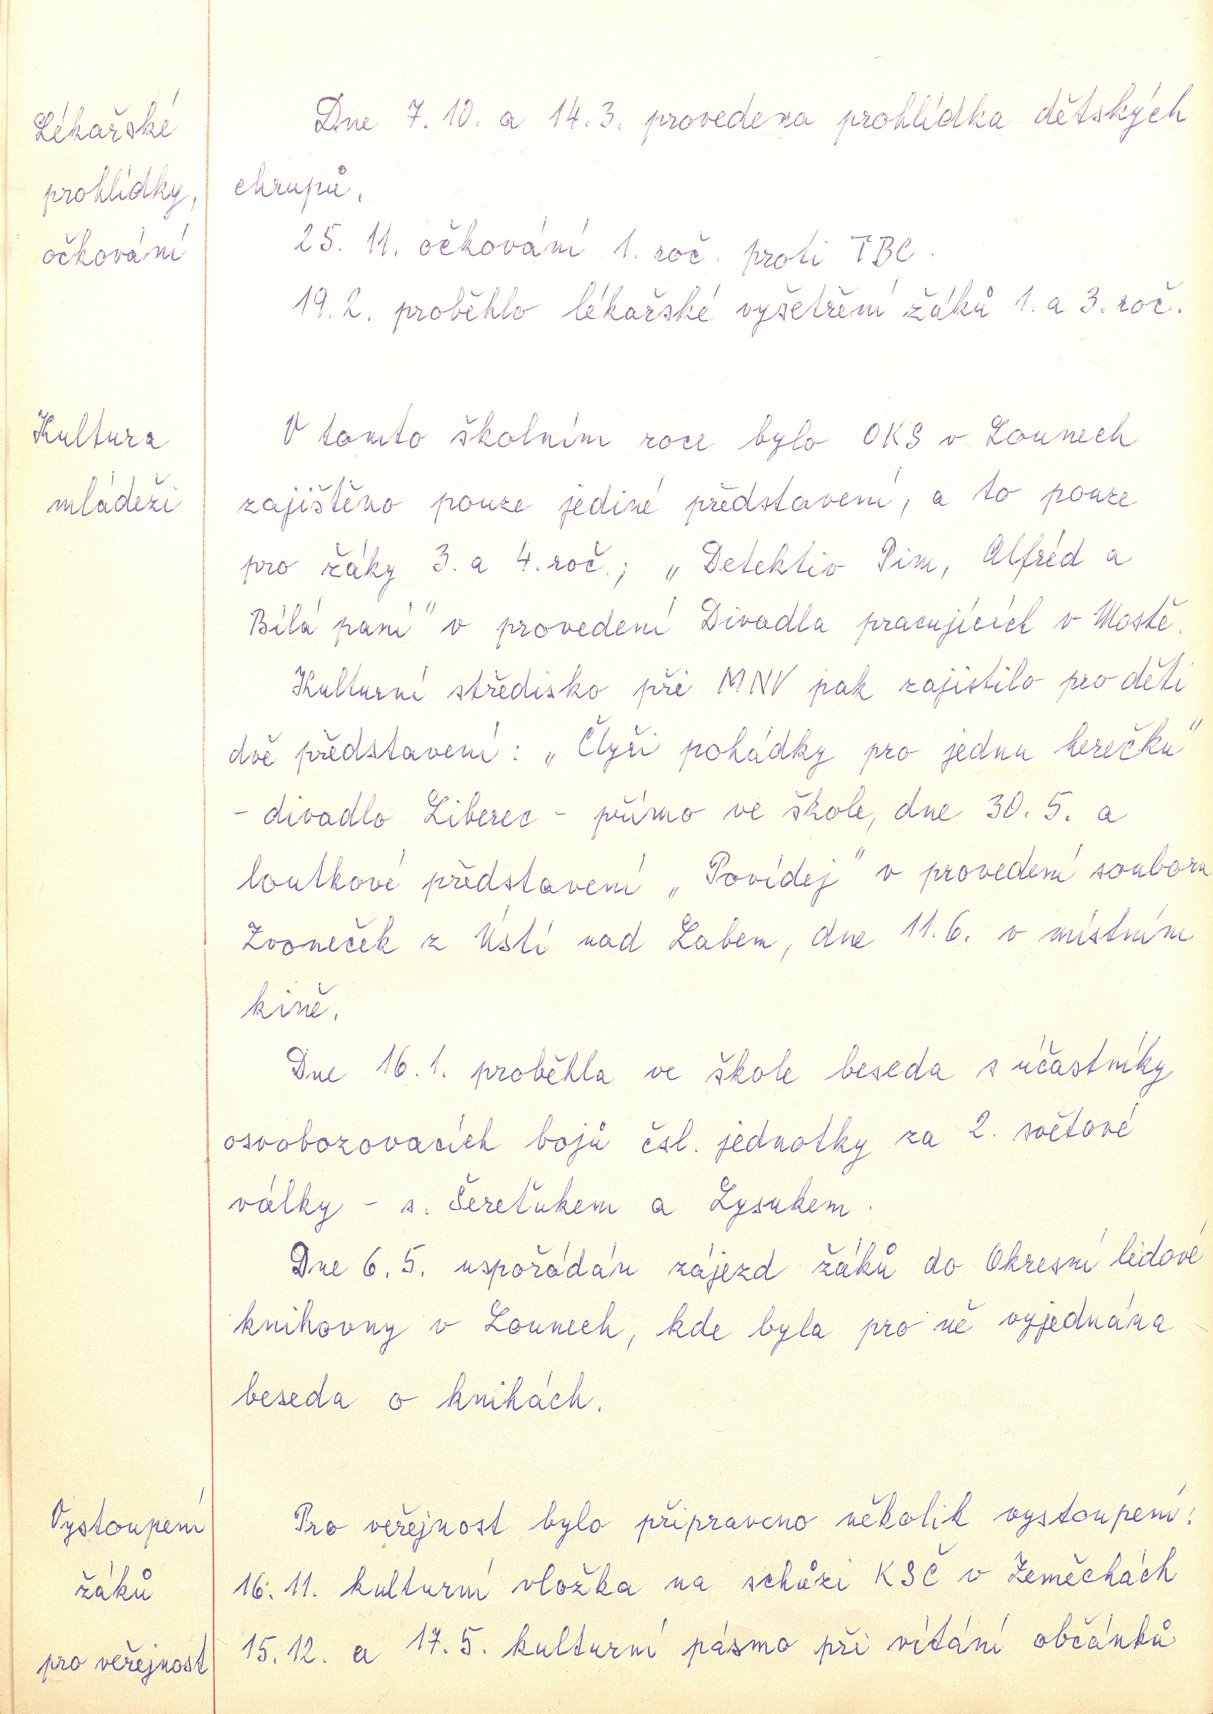 Lékařské
prohlídky,
očkování
Dne 7. 10. a 14. 3. provedena prohlídka dětských
chrupů.
25. 11. očkování 1. roč. proti TBC.
19. 2. proběhlo lékařské vyšetření žáků 1. a 3. roč.
Kultura
mládeži
V tomto školním roce bylo OKS v Lounech
zajištěno pouze jediné představení, a to pouze
pro žáky 3. a 4. roč.; „Detektiv Pim, Alfréd a
Bílá paní" v provedení Divadla pracujících v Mostě.
Kulturní středisko při MNV pak zajistilo pro děti
dvě představení: „Čtyři pohádky pro jednu herečku"
- divadlo Liberec - přímo ve škole, dne 30. 5. a
loutkové představení „Povídej" v provedení souboru
Zvoneček z Ústí nad Labem, dne 11. 6. v místním
kině.
Dne 16. 1. proběhla ve škole beseda s účastníky
osvobozovacích bojů čsl. jednotky za 2. světové
války - s. Šereťukem a Lysukem.
Dne 6. 5. uspořádán zájezd žáků do Okresní lidové
knihovny v Lounech, kde byla pro ně vyjednána
beseda o knihách.
Vystoupení
žáků
pro veřejnost
Pro veřejnost bylo připraveno několik vystoupení:
16. 11. kulturní vložka na schůzi KSČ v Zeměchách
15. 12. a 17. 5. kulturní pásmo při vítání občánků